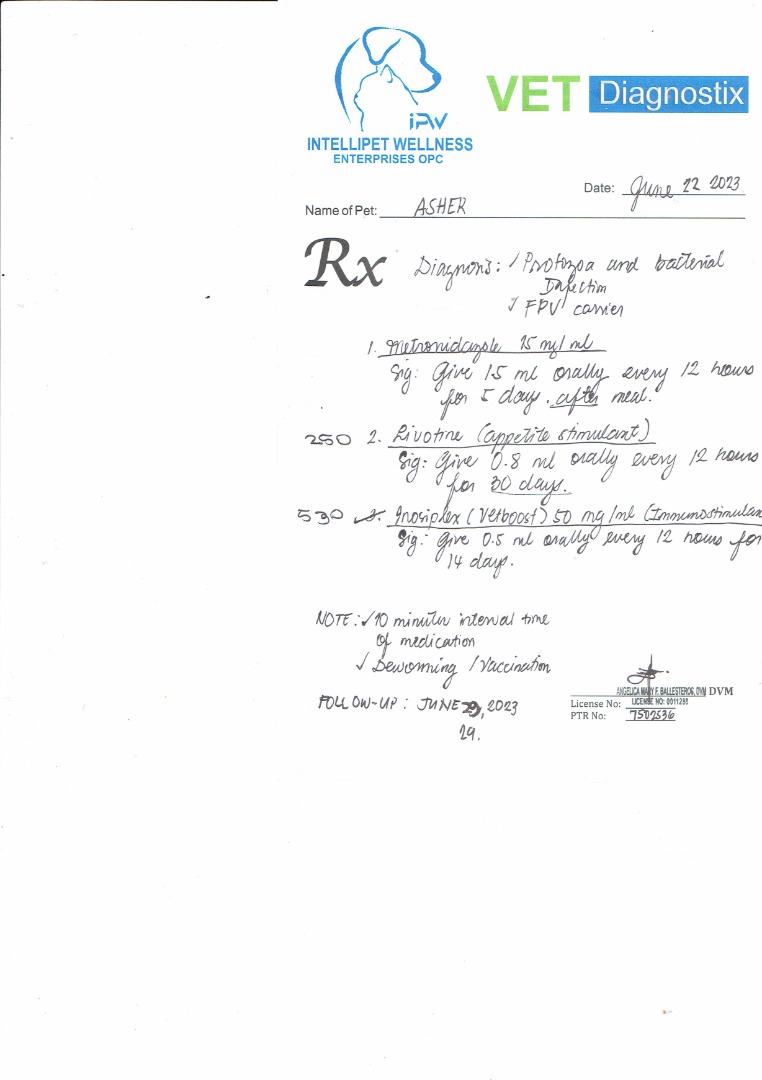 iPW
INTELLIPET WELLNESS
ENTERPRISES OPC
VET Diagnostix
Date: June 22 2023
Name of Pet: ASHER
Rx Diagnosis: ✓ Protozoa and bacterial
Infection
✓ FPV carrier
1. Metronidazole 25 mg/ml
Sig: Give 1.5 ml orally every 12 hours
for 5 days. after meal.
250 2. Livotine (appetite stimulant)
Sig: Give 0.8 ml orally every 12 hours
for 30 days.
530 3. Inosiplex (Vetboost) 50 mg/ml (Immunostimulan
Sig: Give 0.5 ml orally every 12 hours for
14 days.
NOTE: ✓ 10 minutes interval time
of medication
✓ Deworming / Vaccination
ANGELICA MARY F. BALLESTEROS, DVM DVM
FOLLOW-UP: JUNE 29, 2023
License No: LICENSE NO: 0011288
PTR No: 7502536
29.